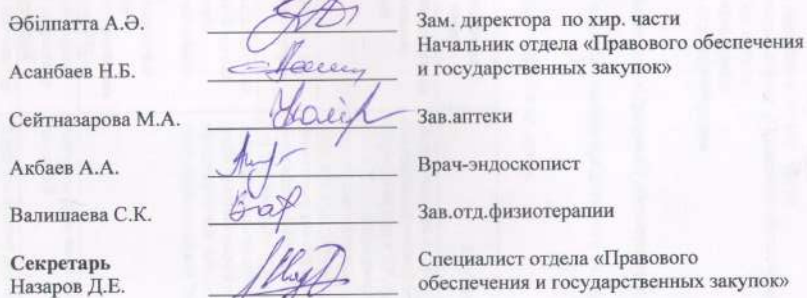 Әбілпатта А.Ә. Зам. директора по хир. части
Начальник отдела «Правового обеспечения
Асанбаев Н.Б. и государственных закупок»
Сейтназарова М.А. Зав.аптеки
Акбаев А.А. Врач-эндоскопист
Валишаева С.К. Зав.отд.физиотерапии
Секретарь Специалист отдела «Правового
Назаров Д.Е. обеспечения и государственных закупок»